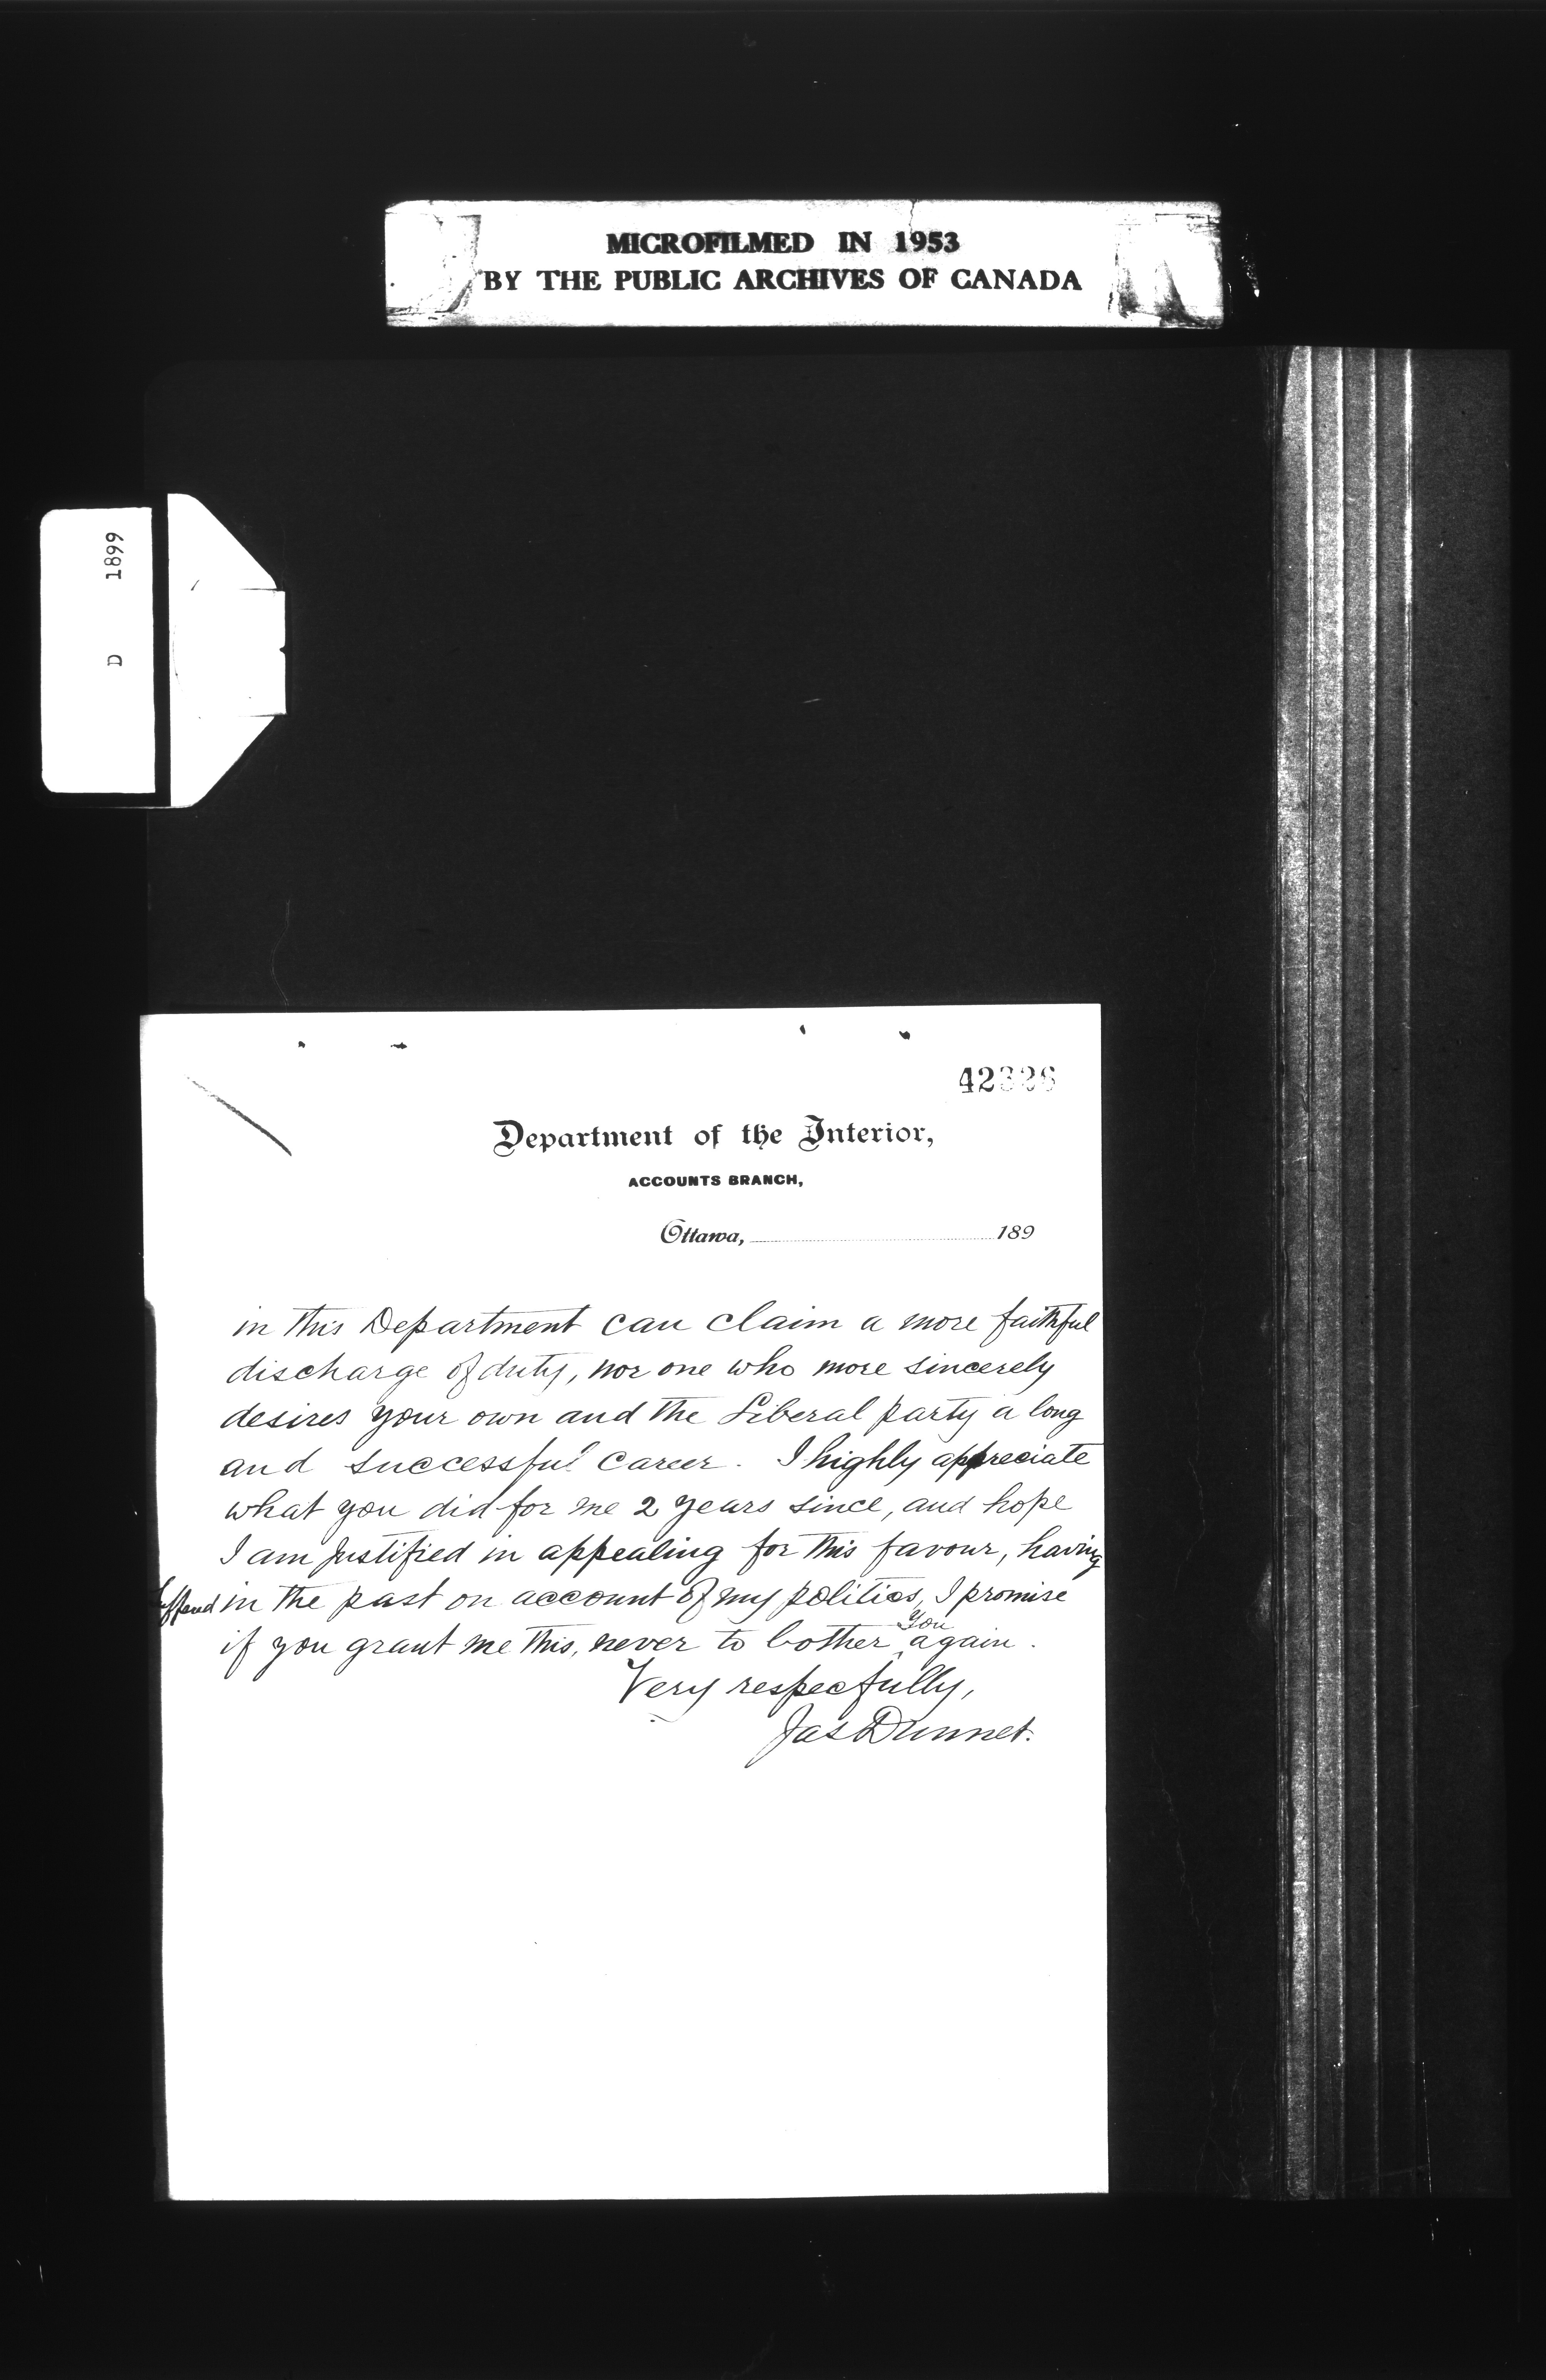 MICROFILMED IN 1953
BY THE PUBLIC ARCHIVES OF CANADA
D 1899
42326
Department of the Interior,
ACCOUNTS BRANCH,
Ottawa, 189
in this Department can claim a more faithful
discharge of duty, nor one who more sincerely
desires your own and the Liberal party a long
and successful career. I highly appreciate
what you did for me 2 years since, and hope
I am justified in appealing for this favour, having
suffered in the past on account of my politics, I promise
if you grant me this, never to bother you again.
Very respectfully,
Jas Dunnet.